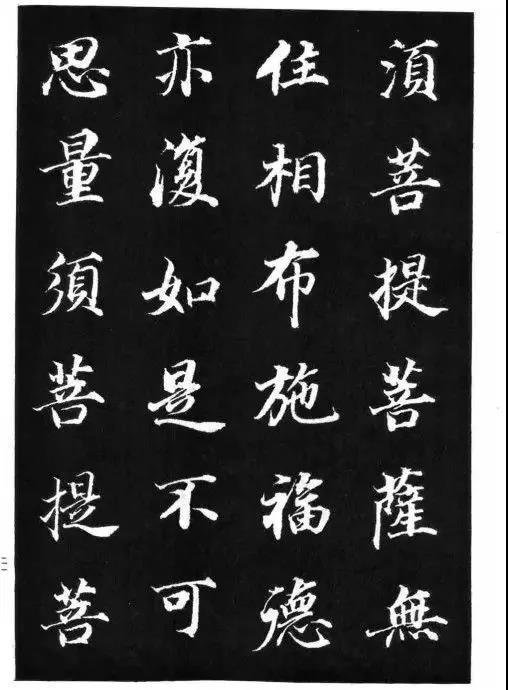 須菩提菩薩無
住相布施福德
亦復如是不可
思量須菩提菩